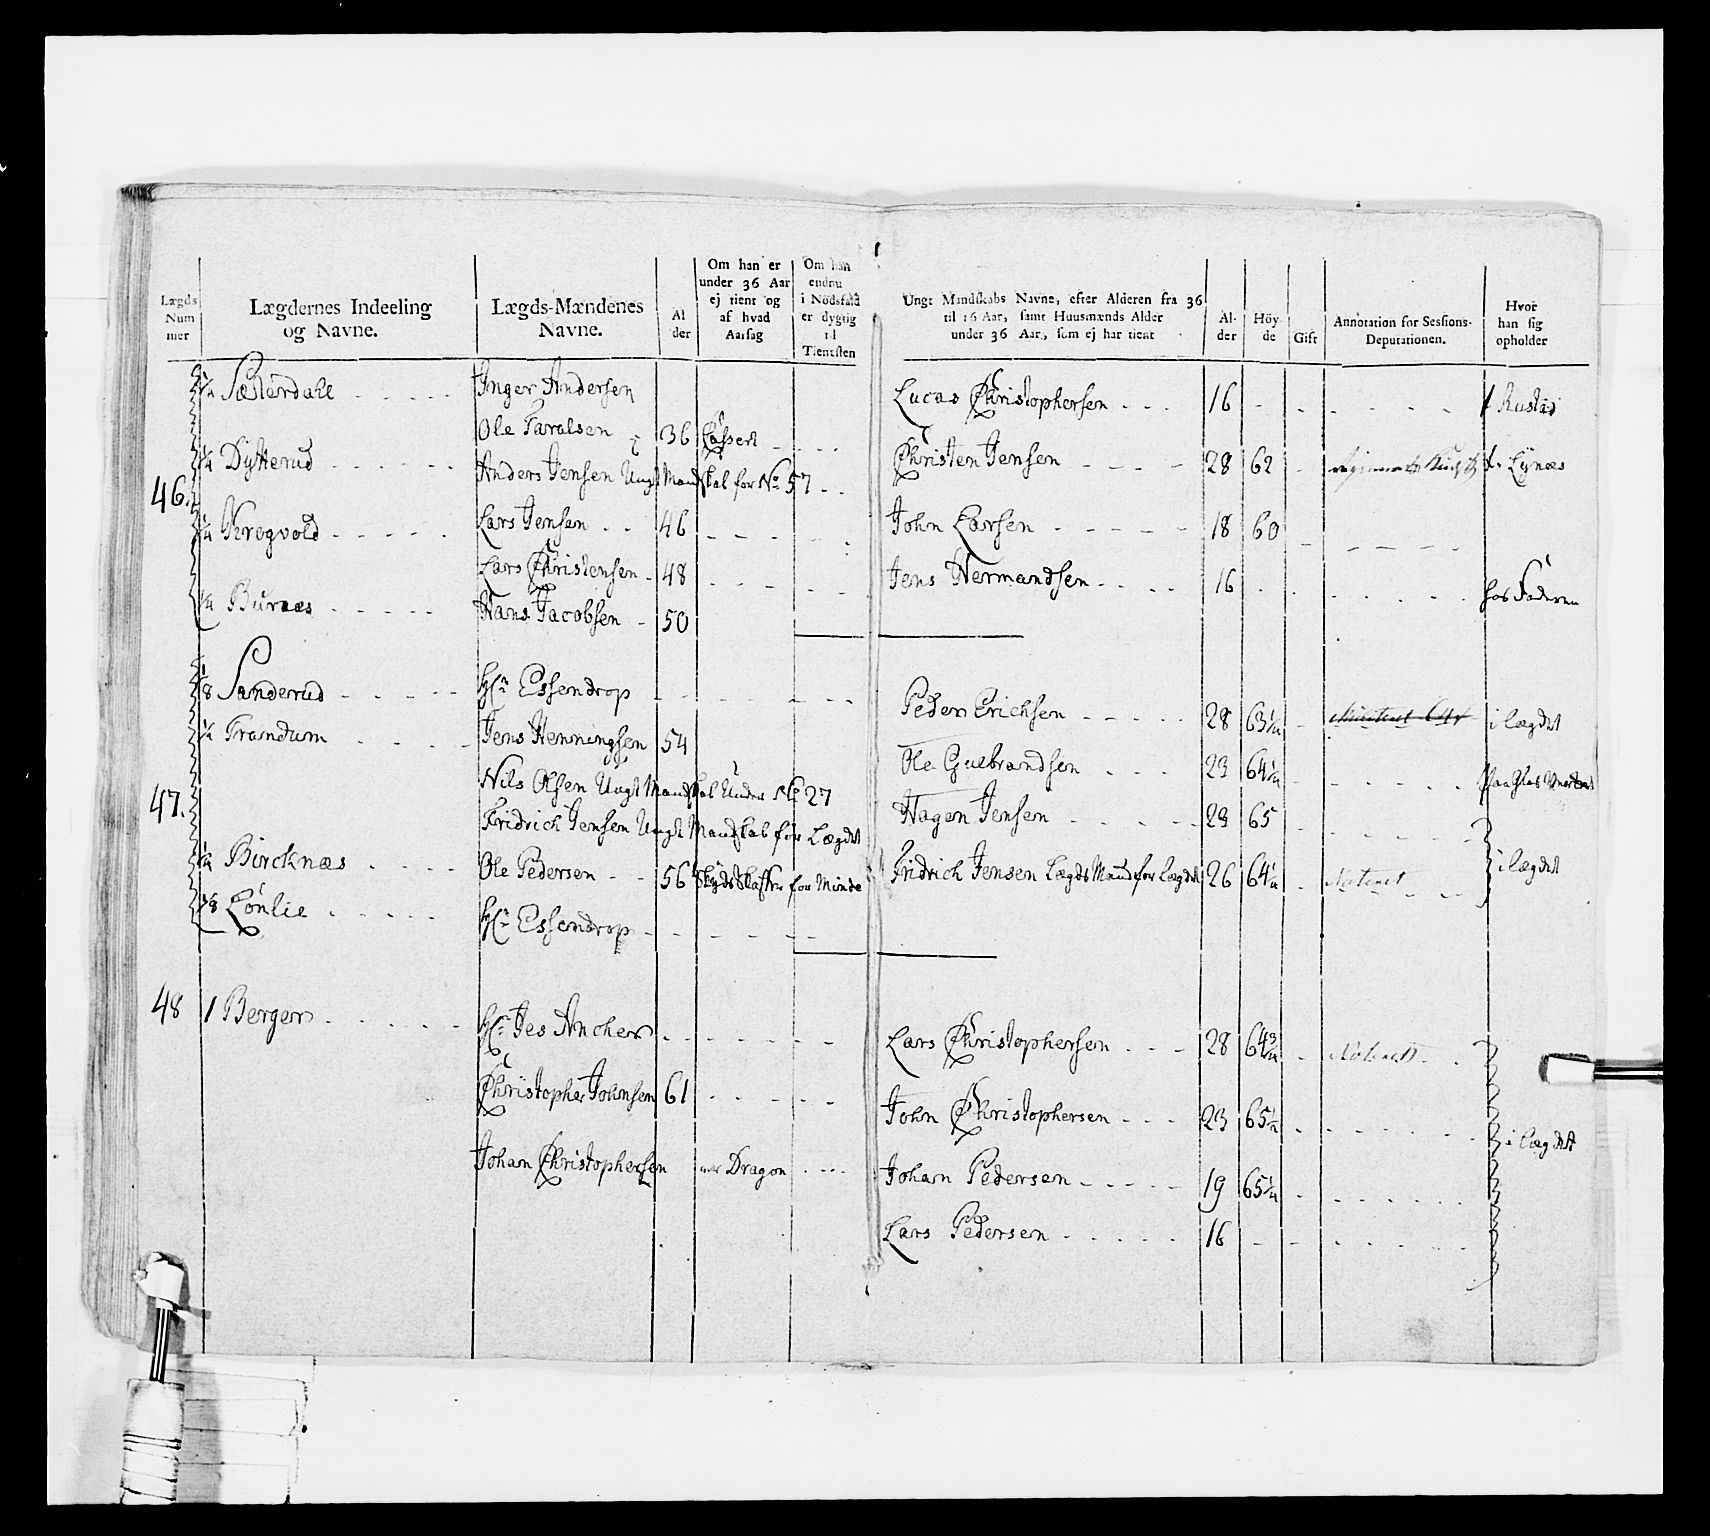 Lægds Num mer
Lægdernes Indeeling og Navne.
Lægds-Mændenes Navne.
Al der
Om han er under 36 Aar ej tient og af hvad Aarsag
Om han endnu i Nödsfald er dygtig til Tienesten
Ungt Mandskabs Navne, efter Alderen fra 36 til 16 Aar, samt Huusmænds Alder under 36 Aar, som ej har tient
Al- der
Höy- de
Gift
Annotation for Sessions- Deputationen.
Hvor han sig opholder
46.
1/4 Sæterdahl Inger Andersen
Ole Taralsen 36
1/4 Dytterud Anders Jensen Ungt Mandskab for No 57
1/4 Krogvold Lars Jensen 46
Lars Christensen 48
1/4 Burnæs Hans Jacobsen 50
Lucas Christophersen 16 Rustad
Christen Jensen 28 62 Lynæs
John Larsen 18 60
Jens Hermandsen 16 hos Faderen
47.
1/8 Sanderud Hr Essendrop
1/2 Trandum Jens Henningsen 54
Nils Olsen Ungt Mandskab Under No 27
Fridrich Jensen Ungt Mandskab for Lægdet
1/4 Bircknæs Ole Pedersen 56 Skyds Skaffer for Minde
1/8 Lönlie Hr Essendrop
Peder Erichsen 28 63 1/4 i Lægdet
Ole Gulbrandsen 23 64 1/4
Hagen Jensen 28 65
Fridrich Jensen Lægds Mand for Lægdet 26 64 1/4 Noteret i Lægdet
48 1 Berger Hr Jes Ancher
Christopher Johnsen 61
Johan Christophersen Dragon
Lars Christophersen 28 64 3/4 Noteret
John Christophersen 23 65 1/2 i Lægdet
Johan Pedersen 19 65 1/4
Lars Pedersen 16